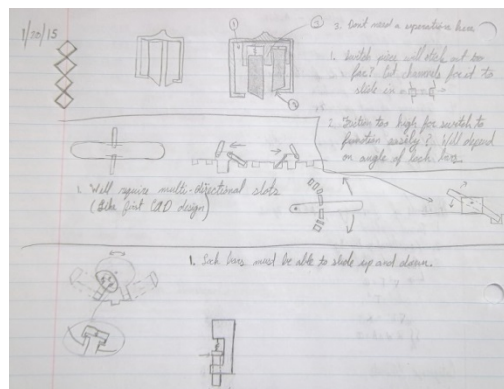 1/20/15
3. Don't need 2 separation bars
1. Switch piece will stick out too
far? Cut channels for it to
slide in
2. Friction too high for switch to
function easily? Will depend
on angle of lock bars.
1. Will require multi-directional slots
(Like first CAD design)
1. Lock bars must be able to slide up and down.